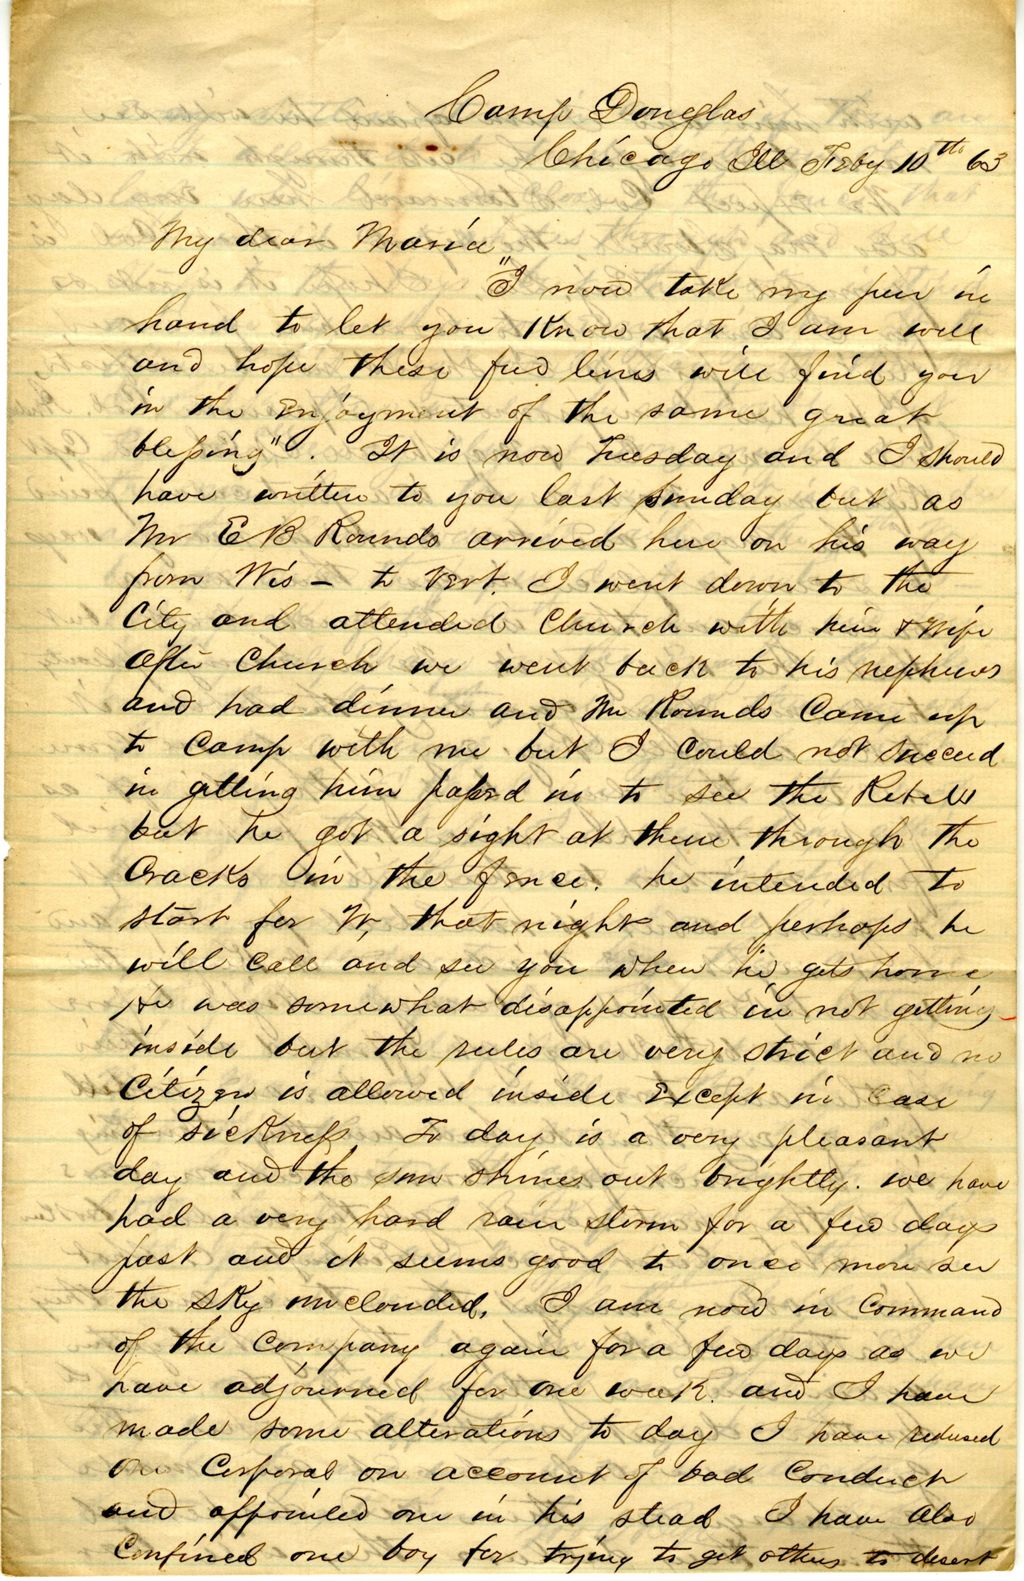 Camp Douglas
Chicago Ill Feby 10th 63
My dear Maria
"I now take my pen in
hand to let you know that I am well
and hope these few lines will find you
in the enjoyment of the same great
blessing". It is now Tuesday and I should
have written to you last sunday but as
Mr E B Rounds arrived here on his way
from Wis - to Vert. I went down to the
City and attended Church with him & Wife
After Church we went back to his nephews
and had dinner and Mr Rounds Came up
to Camp with me but I Could not succeed
in getting him passed in to see the Rebels
but he got a sight at them through the
Cracks in the fence. he intended to
start for Vt, that night and perhaps he
will Call and see you when he gets home
He was somewhat disappointed in not getting
inside but the rules are very strict and no
Citizen is allowed inside Except in Case
of sickness, To day is a very pleasant
day and the sun shines out brightly. we have
had a very hard rain storm for a few days
past and it seems good to once more see
the sky unclouded. I am now in Command
of the Company again for a few days as we
have adjourned for one week. and I have
made some alterations to day I have reduced
one Corporal on account of bad Conduct
and appointed one in his stead I have also
Confined one boy for trying to get others to desert